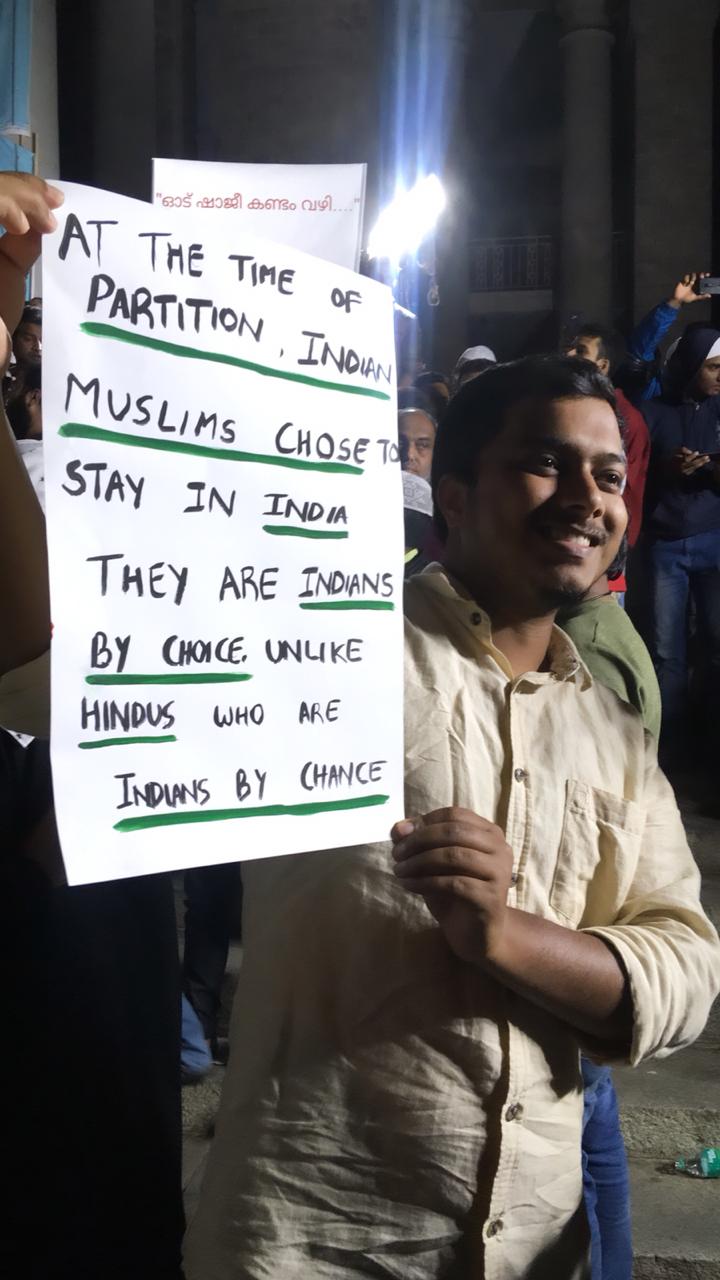 "ഓട് ഷാജീ കണ്ടം വഴി...."
AT THE TIME OF
PARTITION, INDIAN
MUSLIMS CHOSE TO
STAY IN INDIA
THEY ARE INDIANS
BY CHOICE. UNLIKE
HINDUS WHO ARE
INDIANS BY CHANCE